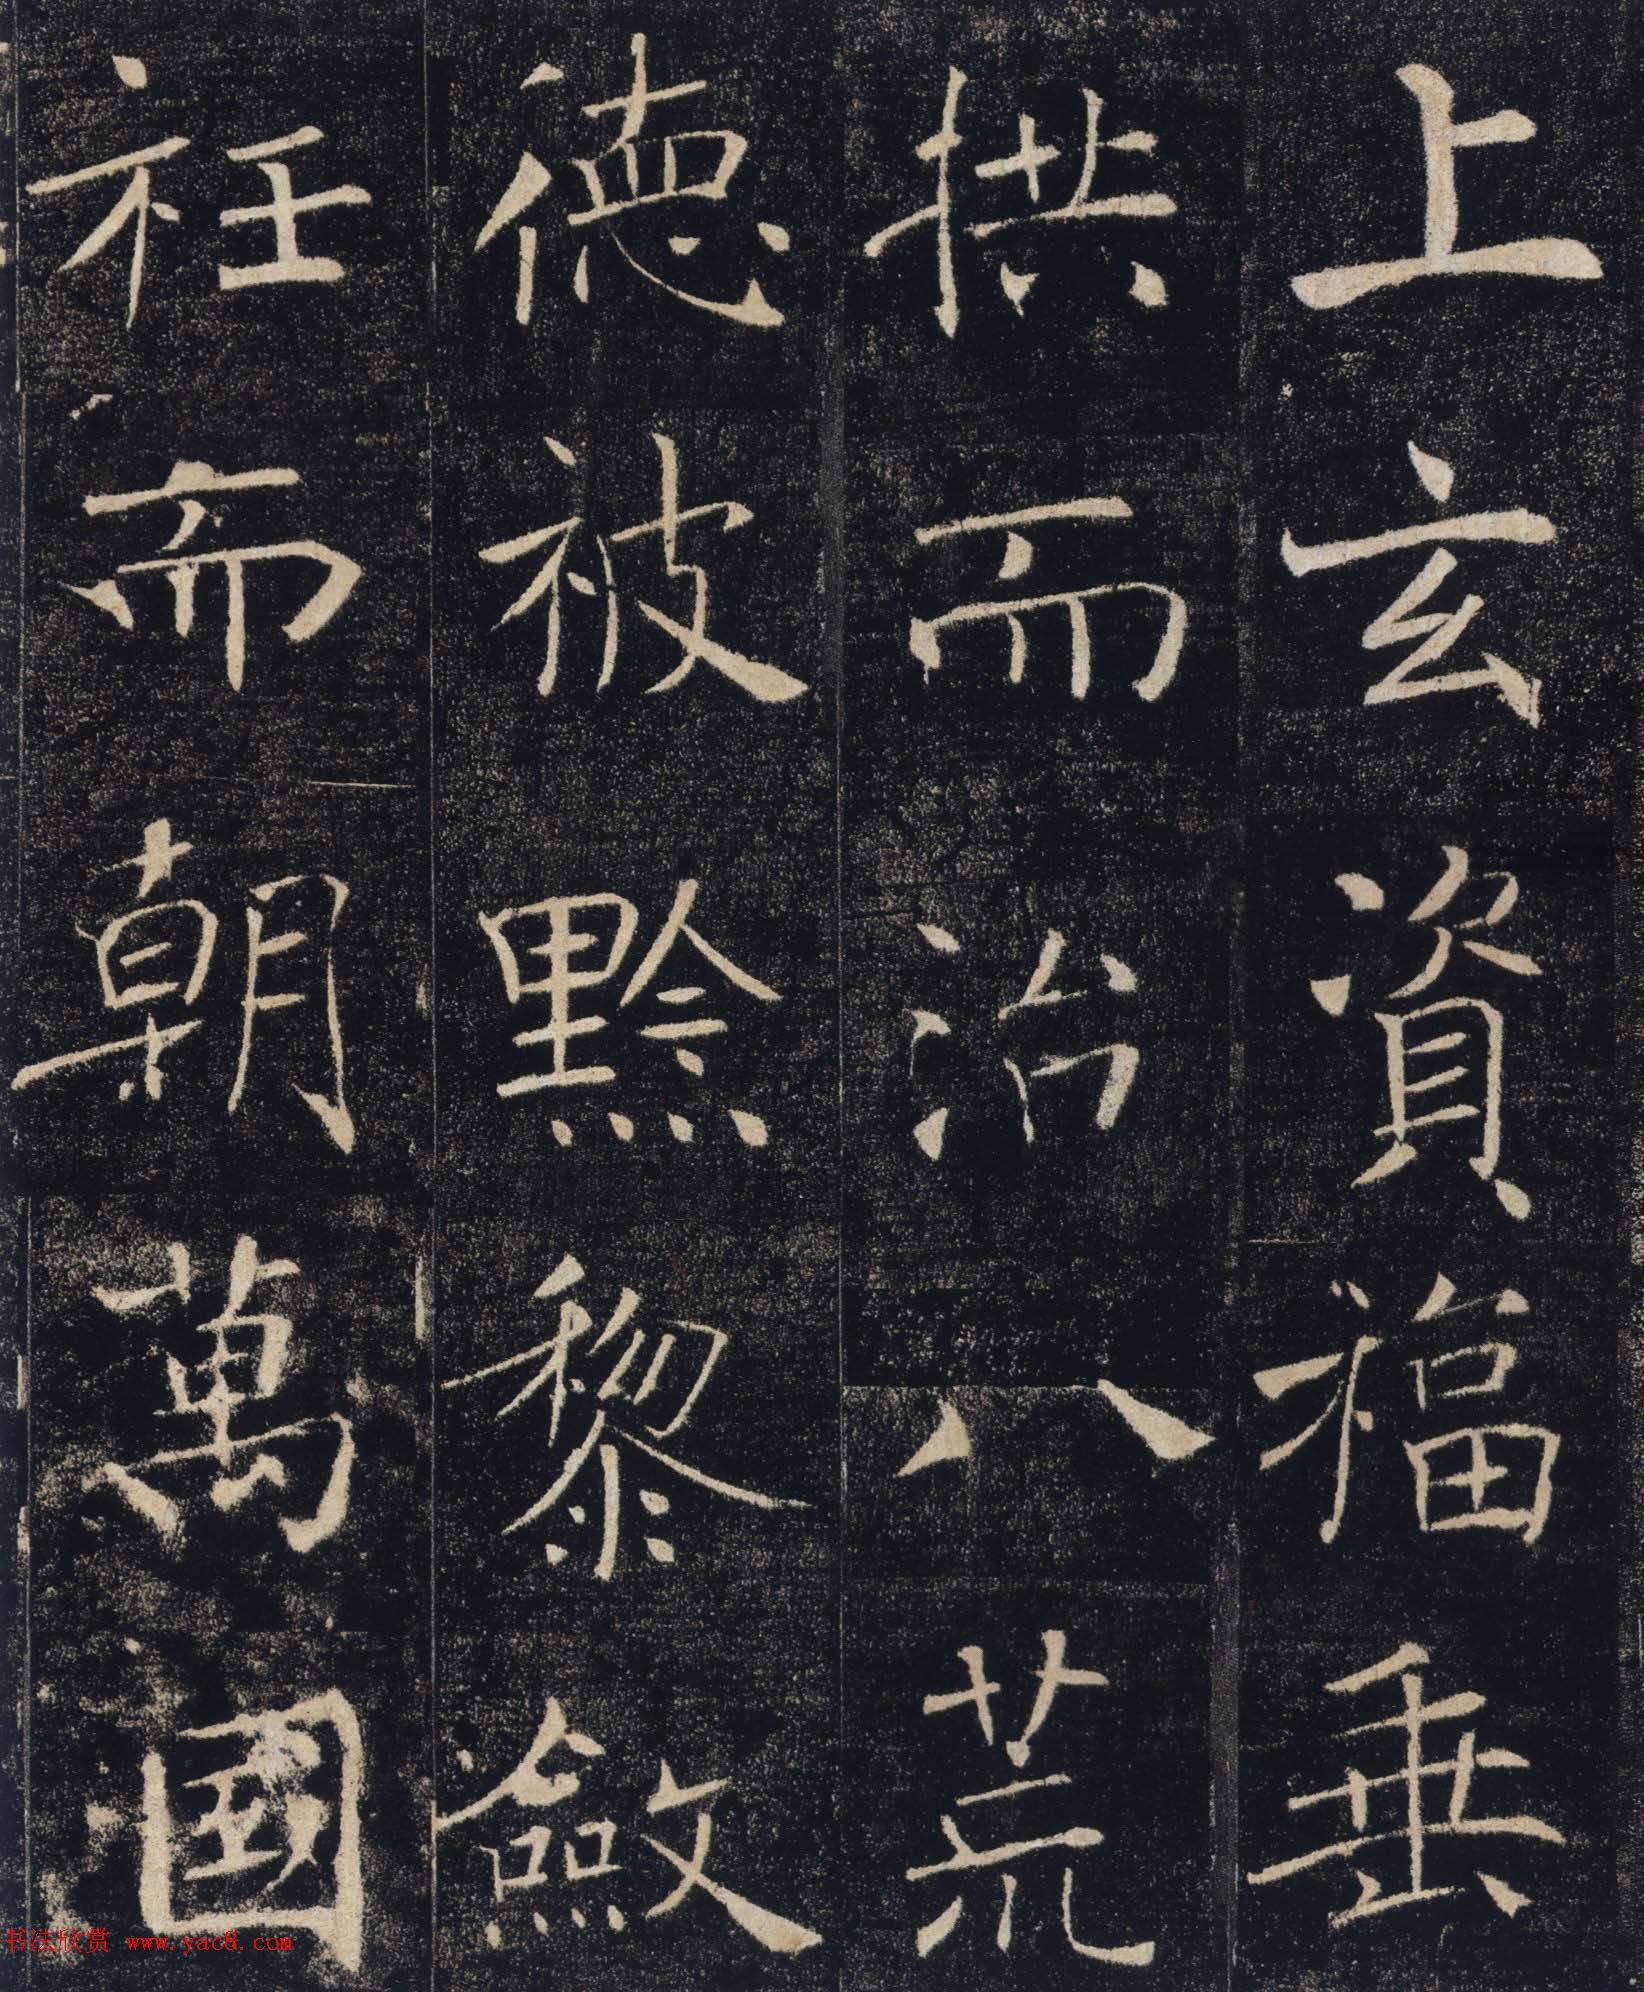 上玄資福垂
拱而治八荒
德被黔黎斂
衽而朝萬國
书法欣赏 www.yac8.com